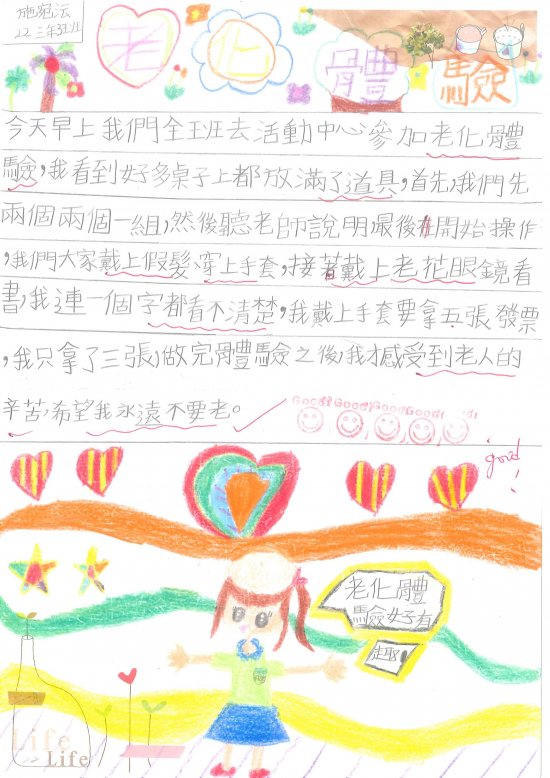 施宛沄
22 三年3班
老化體驗
今天早上我們全班去活動中心參加老化體
驗,我看到好多桌子上都放滿了道具,首先,我們先
兩個兩個一組,然後聽老師說明最後才開始操作
,我們大家戴上假髮,穿上手套,接著戴上老花眼鏡看
書,我連一個字都看不清楚,我戴上手套要拿五張發票
,我只拿了三張,做完體驗之後,我才感受到老人的
辛苦,希望我永遠不要老。
Good! Good! Good! Good!
good!
老化體
驗好有
趣!
Life
Life